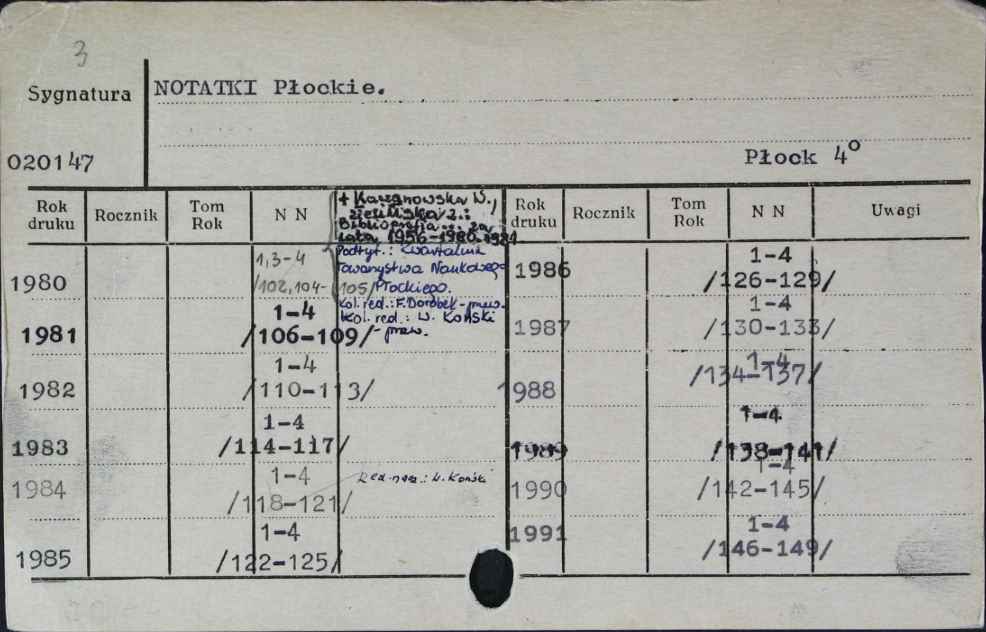 3
Sygnatura
NOTATKI Płockie.
020147
Płock 4°
Rok druku Rocznik Tom Rok N N
+ Kazanowska W.,
Zielińska Z.:
Bibliografia ... za
lata 1956-1980.1981
Podtyt.: Kwartalnik
Towarzystwa Naukowego
Płockiego.
Kol. red.: F. Dorobek-przew.
Kol. red.: W. Koński
-przew.
1980 1,3-4
/102,104-105/
1981 1-4
/106-109/
1982 1-4
/110-113/
1983 1-4
/114-117/
1984 1-4
/118-121/
Red. nacz.: W. Koński
1985 1-4
/122-125/
Rok druku Rocznik Tom Rok N N Uwagi
1986 1-4
/126-129/
1987 1-4
/130-133/
1988 1-4
/134-137/
1989 1-4
/138-141/
1990 1-4
/142-145/
1991 1-4
/146-149/